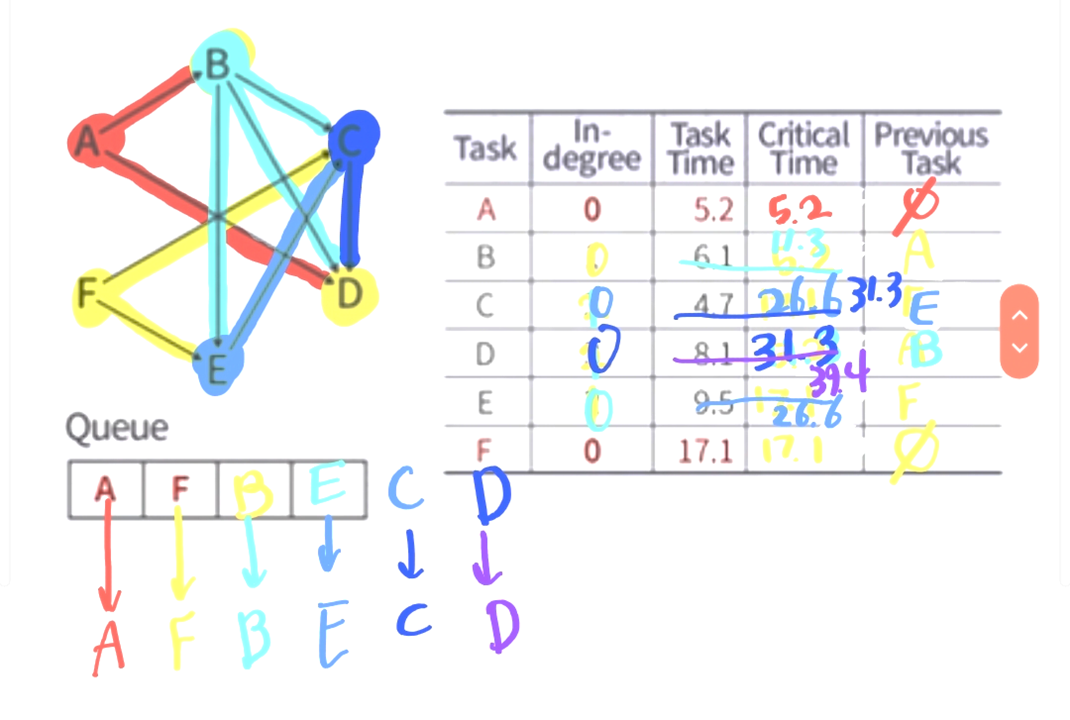 B
A
C
F
D
E
Task In-degree Task Time Critical Time Previous Task
A 0 5.2 5.2 Ø
B 0 6.1 11.3 A
C 0 4.7 26.6 31.3 E
D 0 8.1 31.3 39.4 B
E 0 9.5 26.6 F
F 0 17.1 17.1 Ø
Queue
A F B E C D
A F B E C D